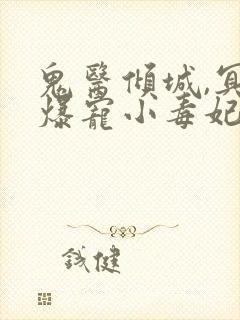 鬼醫傾城,冥
爆寵小毒妃
鋮健